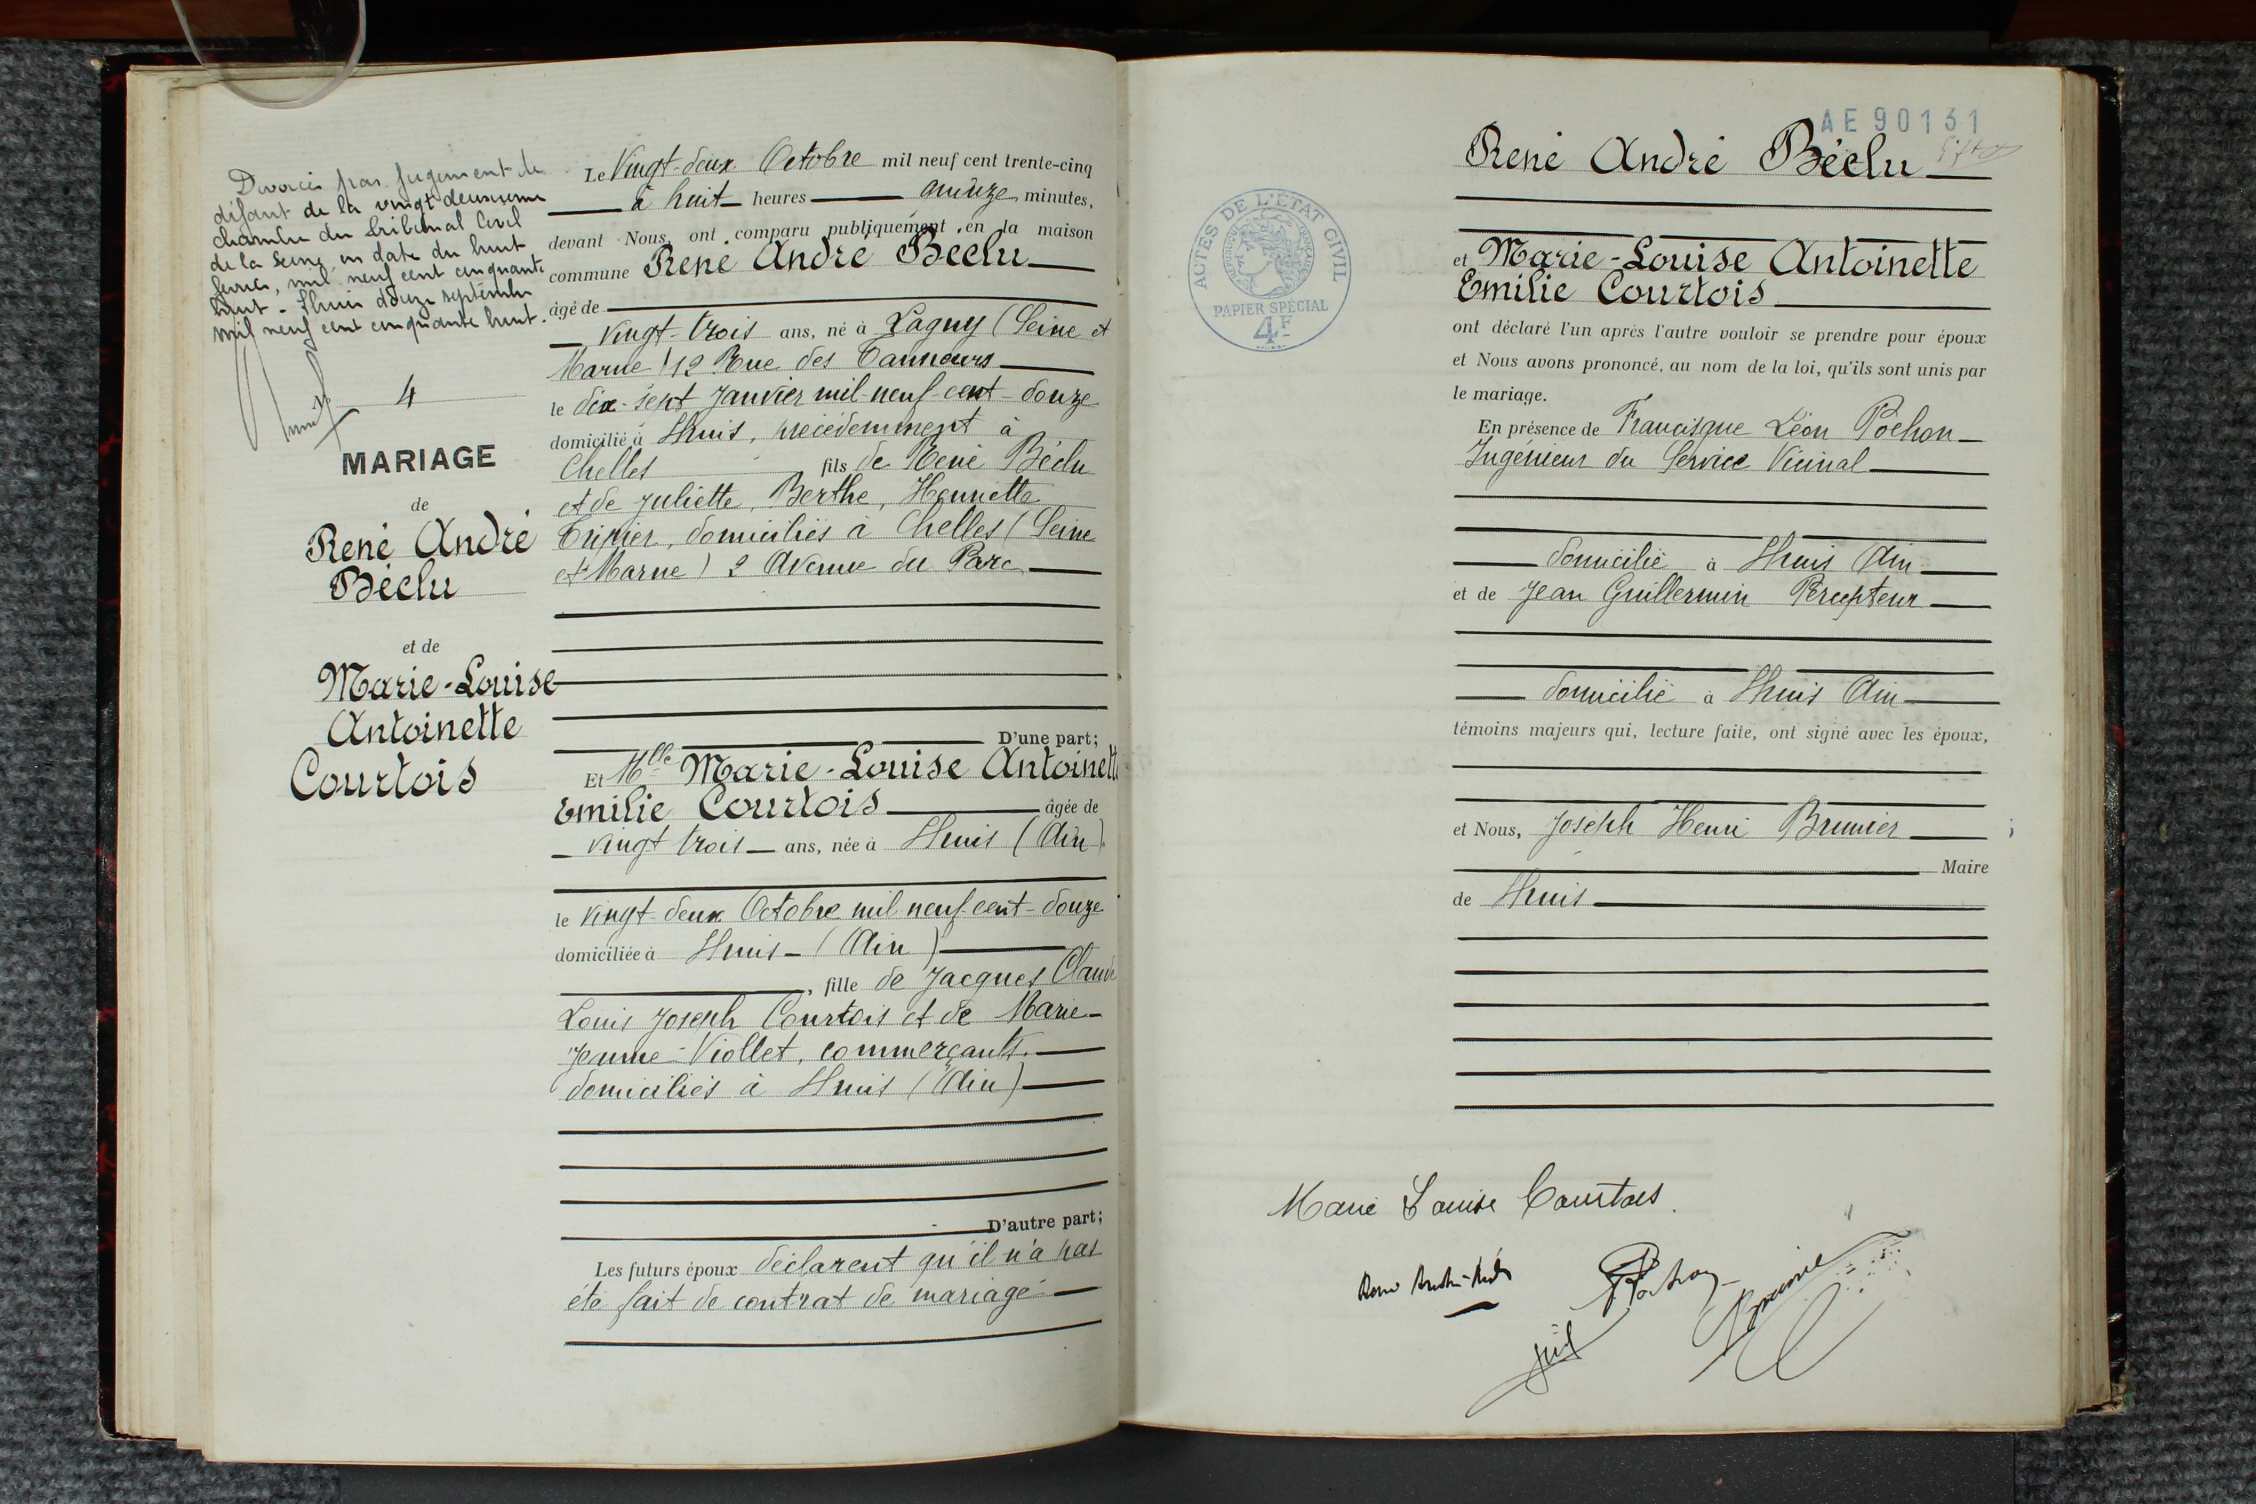 Divorcés par jugement de
défaut de la vingt deuxième
chambre du Tribunal Civil
de la Seine en date du huit
février, mil neuf cent cinquante
huit. Lhuis douze septembre
mil neuf cent cinquante huit.
4
MARIAGE
de
René André
Béclu
et de
Marie-Louise
Antoinette
Courtois
Le Vingt-deux Octobre mil neuf cent trente-cinq
à huit heures quinze minutes,
devant Nous, ont comparu publiquement en la maison
commune René André Béclu
âgé de
vingt-trois ans, né à Lagny (Seine et
Marne) 12 Rue des Tanneurs
le dix-sept Janvier mil-neuf-cent-douze
domicilié à Lhuis, précédemment à
Chelles fils de René Béclu
et de Juliette, Berthe, Henriette
Tripier, domiciliés à Chelles (Seine
et Marne) 2 Avenue du Parc
D'une part;
Et Mlle Marie-Louise Antoinette
Emilie Courtois âgée de
vingt trois ans, née à Lhuis (Ain)
le vingt-deux Octobre mil neuf-cent-douze
domiciliée à Lhuis (Ain)
, fille de Jacques Claude
Louis Joseph Courtois et de Marie-
Jeanne-Viollet, commerçants.
domiciliés à Lhuis (Ain)
D'autre part;
Les futurs époux déclarent qu'il n'a pas
été fait de contrat de mariage
AE90131
René André Béclu
ACTES DE L'ETAT CIVIL
PAPIER SPÉCIAL
4F
et Marie-Louise Antoinette
Emilie Courtois
ont déclaré l'un après l'autre vouloir se prendre pour époux
et Nous avons prononcé, au nom de la loi, qu'ils sont unis par
le mariage.
En présence de Francisque Léon Pochon
Ingénieur du Service Vicinal
domicilié à Lhuis Ain
et de Jean Guillermin Percepteur
domicilié à Lhuis Ain
témoins majeurs qui, lecture faite, ont signé avec les époux,
et Nous, Joseph Henri Brunier
Maire
de Lhuis
Marie Louise Courtois.